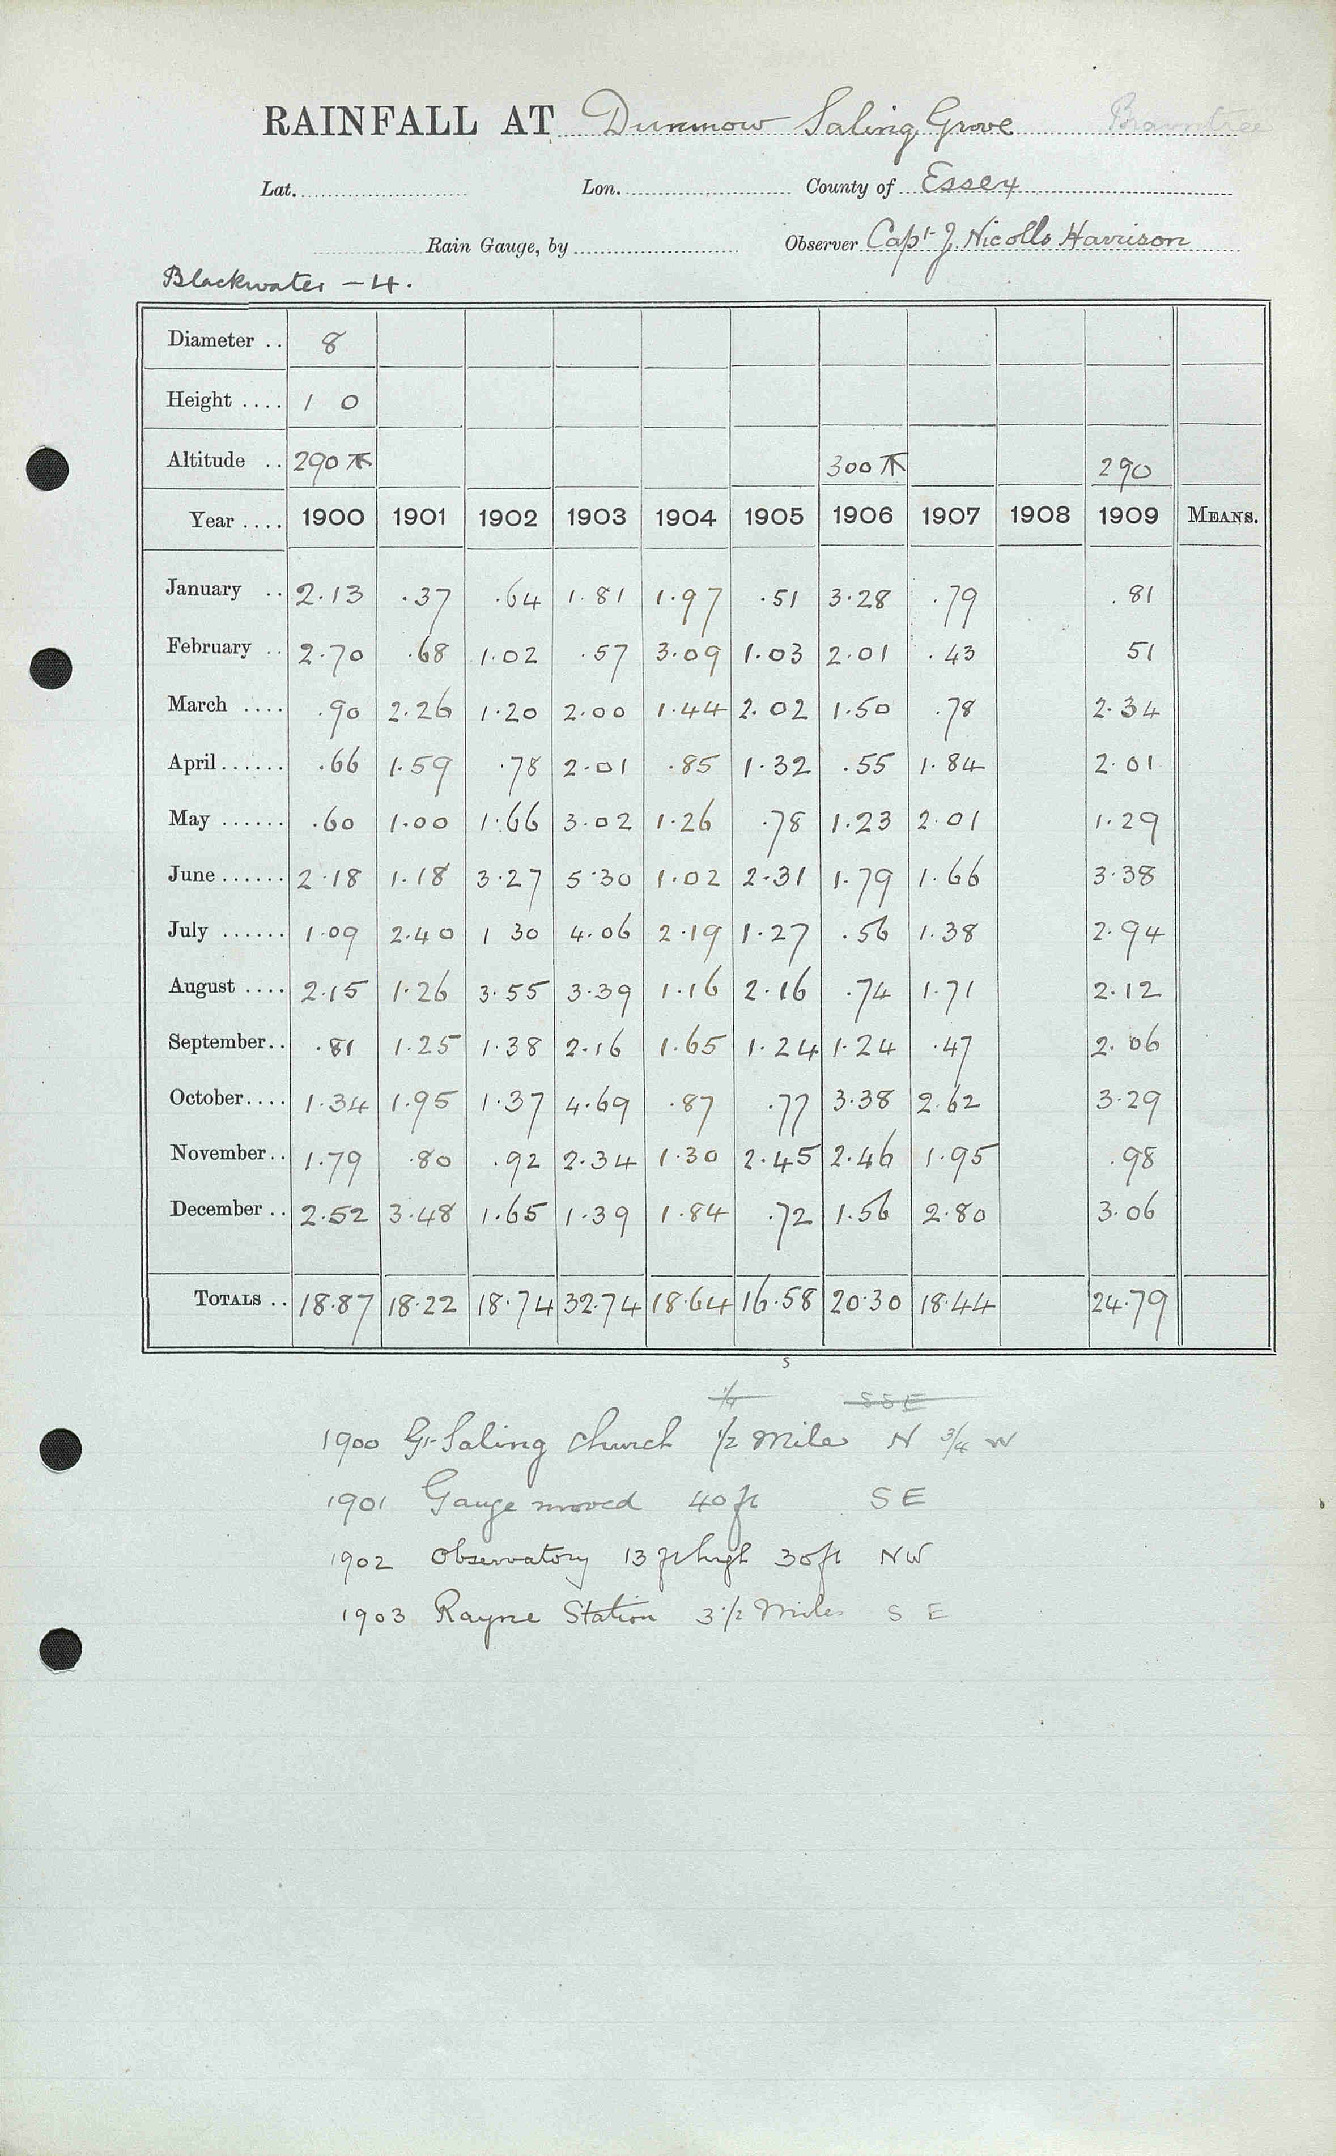 RAINFALL AT Dunmow Saling Grove Braintree
Lat. Lon. County of Essex
Rain Gauge, by Observer Capt J. Nicolls Harrison
Blackwater - 4.
Diameter .. 8
Height .... 1 0
Altitude .. 290 300 290
Year .... 1900 1901 1902 1903 1904 1905 1906 1907 1908 1909 MEANS.
January .. 2.13 .37 .64 1.81 1.97 .51 3.28 .79 .81
February .. 2.70 .68 1.02 .57 3.09 1.03 2.01 .43 51
March .... .90 2.26 1.20 2.00 1.44 2.02 1.50 .78 2.34
April...... .66 1.59 .78 2.01 .85 1.32 .55 1.84 2.01
May ...... .60 1.00 1.66 3.02 1.26 .78 1.23 2.01 1.29
June...... 2.18 1.18 3.27 5.30 1.02 2.31 1.79 1.66 3.38
July ...... 1.09 2.40 1 30 4.06 2.19 1.27 .56 1.38 2.94
August .... 2.15 1.26 3.55 3.39 1.16 2.16 .74 1.71 2.12
September.. .81 1.25 1.38 2.16 1.65 1.24 1.24 .47 2.06
October.... 1.34 1.95 1.37 4.69 .87 .77 3.38 2.62 3.29
November.. 1.79 .80 .92 2.34 1.30 2.45 2.46 1.95 .98
December .. 2.52 3.48 1.65 1.39 1.84 .72 1.56 2.80 3.06
TOTALS .. 18.87 18.22 18.74 32.74 18.64 16.58 20.30 18.44 24.79
s
1/4 SSE
1900 Gt Saling Church 1/2 Mile N 3/4 W
1901 Gauge moved 40 ft SE
1902 Observatory 13 ft high 30ft NW
1903 Rayne Station 3 1/2 Miles S E